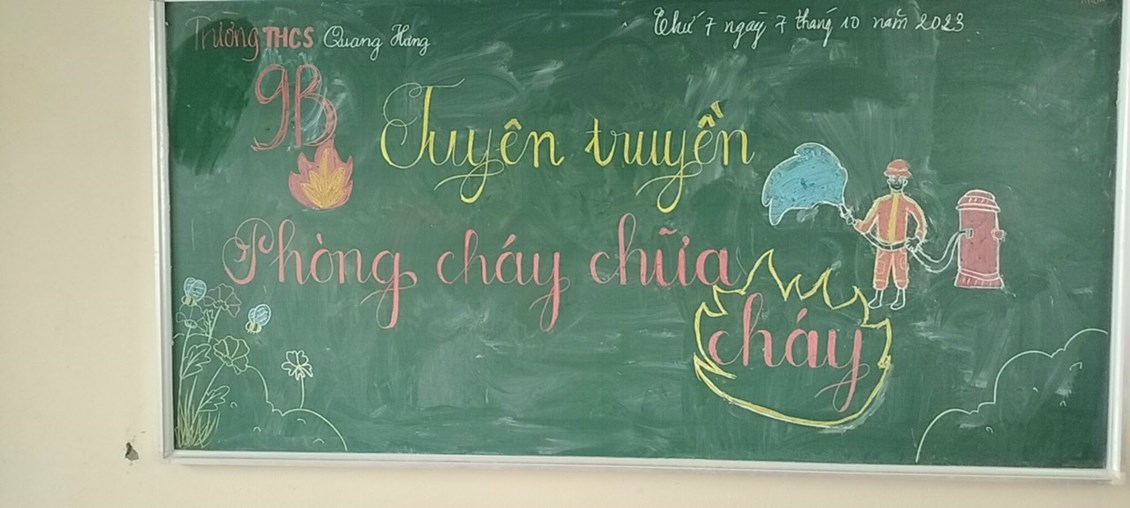 Trường THCS Quang Hưng
Thứ 7 ngày 7 tháng 10 năm 2023
9B
Tuyên truyền
Phòng cháy chữa
cháy